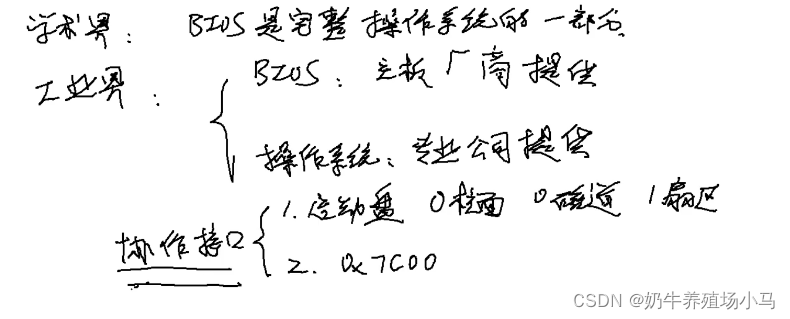 学术界: BIOS是完整操作系统的一部分.
工业界: BIOS: 主板厂商提供
操作系统: 专业公司提供
协作接口 1. 启动盘 0柱面 0磁道 1扇区
2. 0x7C00
CSDN @奶牛养殖场小马